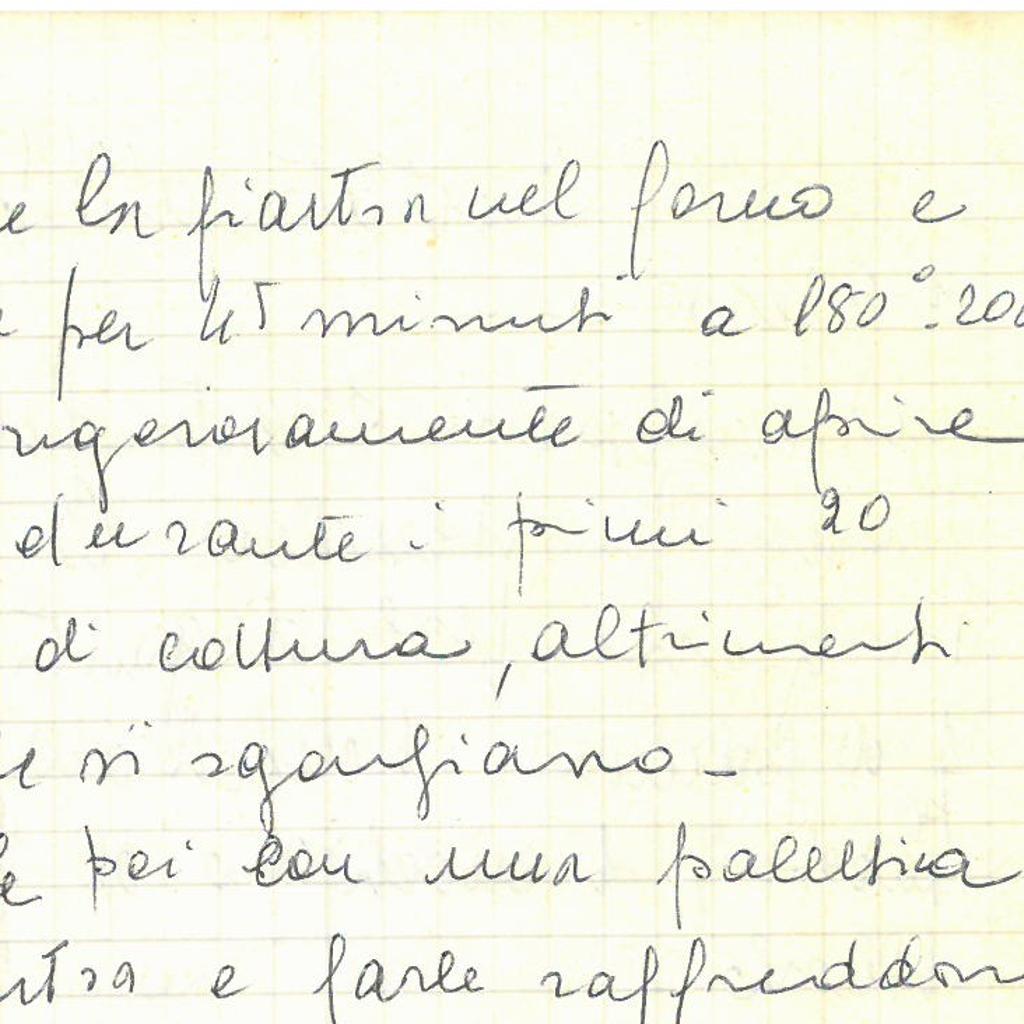 la piastra nel forno e
per 45 minuti a 180°-200
rigorosamente di aprire
durante i primi 20
di cottura, altrimenti
si sgonfiano -
poi con una palettina
e farle raffreddar